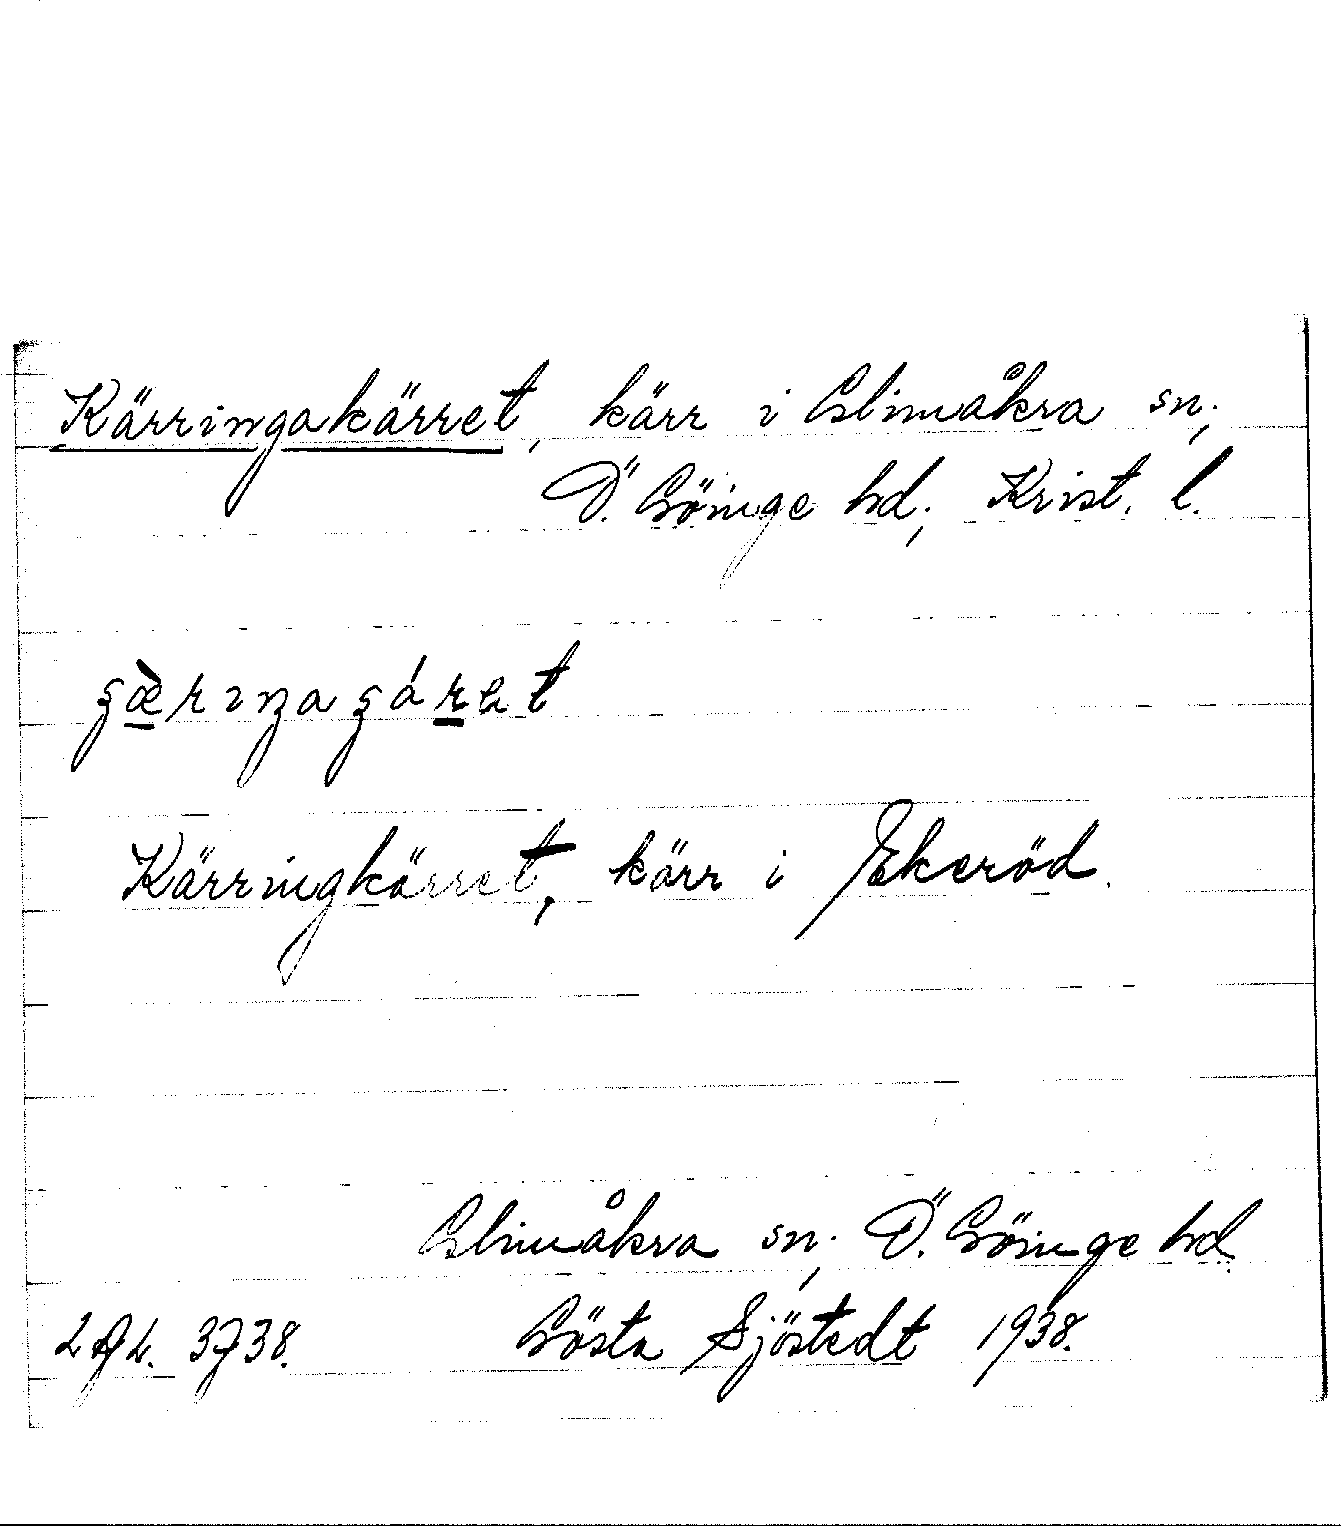 Kärringakärret, kärr i Glimåkra sn,
Ö. Göinge hd, Krist. l.
Kärringkärret, kärr i Ekeröd.
Glimåkra sn, Ö. Göinge hd.
Gösta Sjöstedt 1938.